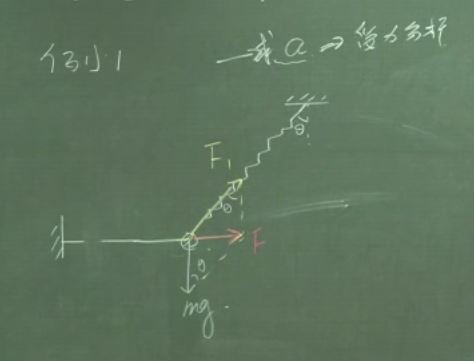 例1 一求a⇒受力分析
θ
F₁
θ
F
θ
mg